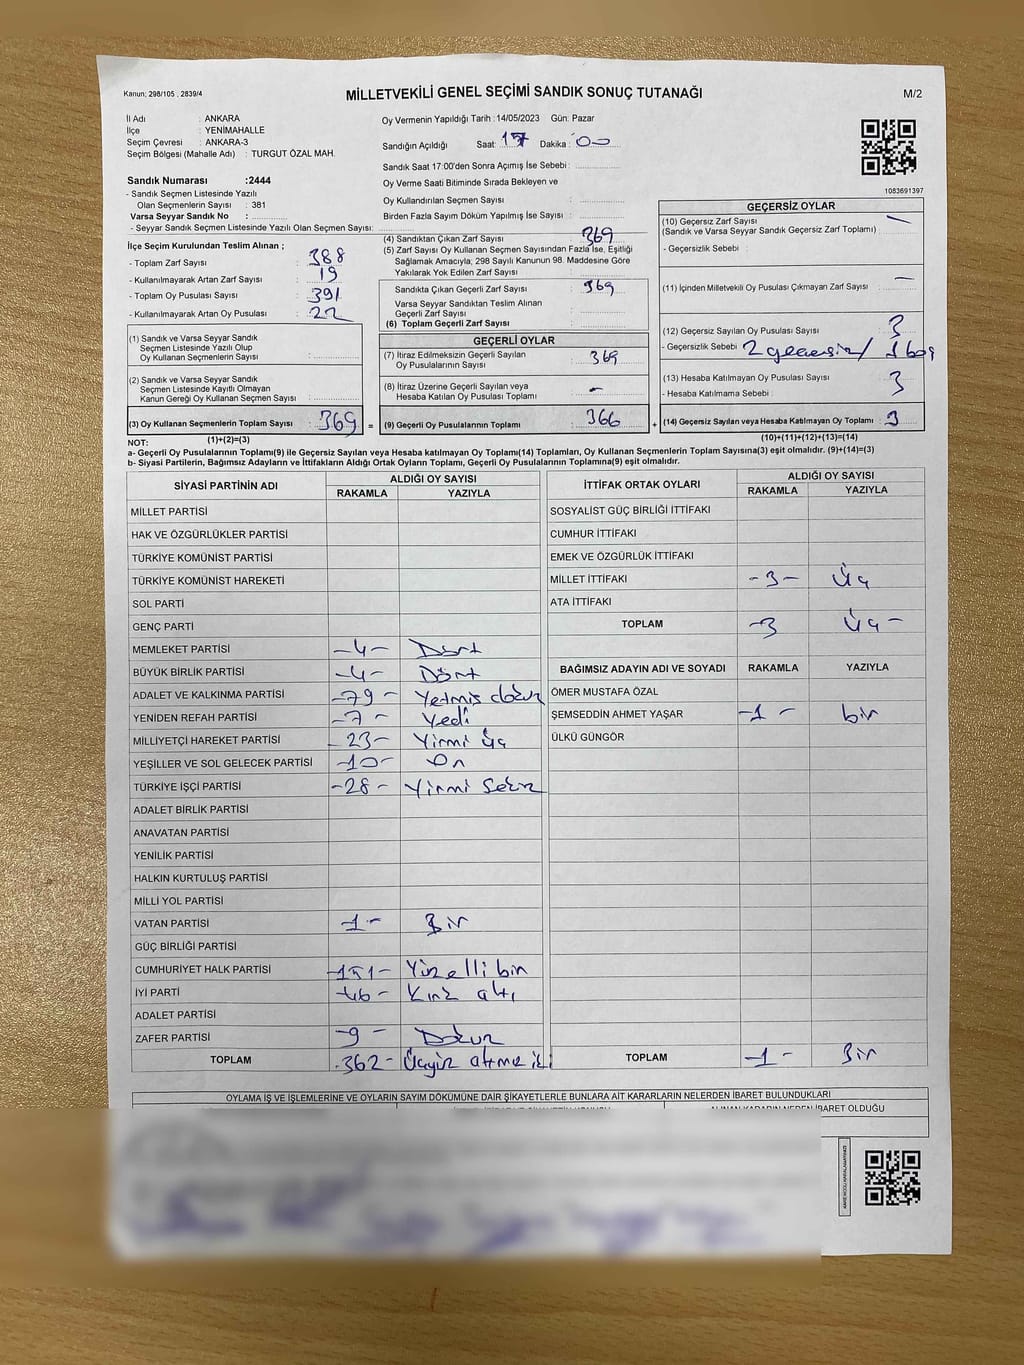 Kanun; 298/105 , 2839/4
MİLLETVEKİLİ GENEL SEÇİMİ SANDIK SONUÇ TUTANAĞI
M/2
İl Adı : ANKARA
İlçe : YENİMAHALLE
Seçim Çevresi : ANKARA-3
Seçim Bölgesi (Mahalle Adı) : TURGUT ÖZAL MAH.
Oy Vermenin Yapıldığı Tarih : 14/05/2023 Gün: Pazar
Sandığın Açıldığı Saat: 17 Dakika : 00
Sandık Saat 17:00'den Sonra Açımış İse Sebebi:
Oy Verme Saati Bitiminde Sırada Bekleyen ve
Oy Kullandırılan Seçmen Sayısı :
Birden Fazla Sayım Döküm Yapılmış İse Sayısı :
1083691397
Sandık Numarası :2444
- Sandık Seçmen Listesinde Yazılı
Olan Seçmenlerin Sayısı : 381
Varsa Seyyar Sandık No :
- Seyyar Sandık Seçmen Listesinde Yazılı Olan Seçmen Sayısı:
İlçe Seçim Kurulundan Teslim Alınan ;
- Toplam Zarf Sayısı : 388
- Kullanılmayarak Artan Zarf Sayısı : 19
- Toplam Oy Pusulası Sayısı : 391
- Kullanılmayarak Artan Oy Pusulası : 22
(1) Sandık ve Varsa Seyyar Sandık
Seçmen Listesinde Yazılı Olup
Oy Kullanan Seçmenlerin Sayısı :
(2) Sandık ve Varsa Seyyar Sandık
Seçmen Listesinde Kayıtlı Olmayan
Kanun Gereği Oy Kullanan Seçmen Sayısı :
(3) Oy Kullanan Seçmenlerin Toplam Sayısı : 369 =
(1)+(2)=(3)
(4) Sandıktan Çıkan Zarf Sayısı : 369
(5) Zarf Sayısı Oy Kullanan Seçmen Sayısından Fazla İse, Eşitliği
Sağlamak Amacıyla; 298 Sayılı Kanunun 98. Maddesine Göre
Yakılarak Yok Edilen Zarf Sayısı :
Sandıkta Çıkan Geçerli Zarf Sayısı : 369
Varsa Seyyar Sandıktan Teslim Alınan
Geçerli Zarf Sayısı :
(6) Toplam Geçerli Zarf Sayısı :
GEÇERLİ OYLAR
(7) İtiraz Edilmeksizin Geçerli Sayılan
Oy Pusulalarının Sayısı : 369
(8) İtiraz Üzerine Geçerli Sayılan veya
Hesaba Katılan Oy Pusulası Toplamı : -
(9) Geçerli Oy Pusulalarının Toplamı : 366 +
GEÇERSİZ OYLAR
(10) Geçersiz Zarf Sayısı -
(Sandık ve Varsa Seyyar Sandık Geçersiz Zarf Toplamı) :
- Geçersizlik Sebebi :
(11) İçinden Milletvekili Oy Pusulası Çıkmayan Zarf Sayısı : -
(12) Geçersiz Sayılan Oy Pusulası Sayısı : 3
- Geçersizlik Sebebi : 2 geçersiz/ 1 boş
(13) Hesaba Katılmayan Oy Pusulası Sayısı : 3
- Hesaba Katılmama Sebebi :
(14) Geçersiz Sayılan veya Hesaba Katılmayan Oy Toplamı : 3
(10)+(11)+(12)+(13)=(14)
NOT:
a- Geçerli Oy Pusulalarının Toplamı(9) ile Geçersiz Sayılan veya Hesaba katılmayan Oy Toplamı(14) Toplamları, Oy Kullanan Seçmenlerin Toplam Sayısına(3) eşit olmalıdır. (9)+(14)=(3)
b- Siyasi Partilerin, Bağımsız Adayların ve İttifakların Aldığı Ortak Oyların Toplamı, Geçerli Oy Pusulalarının Toplamına(9) eşit olmalıdır.
SİYASİ PARTİNİN ADI ALDIĞI OY SAYISI
RAKAMLA YAZIYLA
MİLLET PARTİSİ
HAK VE ÖZGÜRLÜKLER PARTİSİ
TÜRKİYE KOMÜNİST PARTİSİ
TÜRKİYE KOMÜNİST HAREKETİ
SOL PARTİ
GENÇ PARTİ
MEMLEKET PARTİSİ -4- Dört
BÜYÜK BİRLİK PARTİSİ -4- Dört
ADALET VE KALKINMA PARTİSİ -79- Yetmiş dokuz
YENİDEN REFAH PARTİSİ -7- Yedi
MİLLİYETÇİ HAREKET PARTİSİ -23- Yirmi Üç
YEŞİLLER VE SOL GELECEK PARTİSİ -10- On
TÜRKİYE İŞÇİ PARTİSİ -28- Yirmi Sekiz
ADALET BİRLİK PARTİSİ
ANAVATAN PARTİSİ
YENİLİK PARTİSİ
HALKIN KURTULUŞ PARTİSİ
MİLLİ YOL PARTİSİ
VATAN PARTİSİ -1- Bir
GÜÇ BİRLİĞİ PARTİSİ
CUMHURİYET HALK PARTİSİ -151- Yüz elli bir
İYİ PARTİ -46- Kırk altı
ADALET PARTİSİ
ZAFER PARTİSİ -9- Dokuz
TOPLAM -362- Üçyüz atmış iki
İTTİFAK ORTAK OYLARI ALDIĞI OY SAYISI
RAKAMLA YAZIYLA
SOSYALİST GÜÇ BİRLİĞİ İTTİFAKI
CUMHUR İTTİFAKI
EMEK VE ÖZGÜRLÜK İTTİFAKI
MİLLET İTTİFAKI -3- Üç
ATA İTTİFAKI
TOPLAM -3 Üç-
BAĞIMSIZ ADAYIN ADI VE SOYADI RAKAMLA YAZIYLA
ÖMER MUSTAFA ÖZAL
ŞEMSEDDİN AHMET YAŞAR -1- bir
ÜLKÜ GÜNGÖR
TOPLAM -1- Bir
OYLAMA İŞ VE İŞLEMLERİNE VE OYLARIN SAYIM DÖKÜMÜNE DAİR ŞİKAYETLERLE BUNLARA AİT KARARLARIN NELERDEN İBARET BULUNDUKLARI
ALINAN KARARIN NEDEN İBARET OLDUĞU